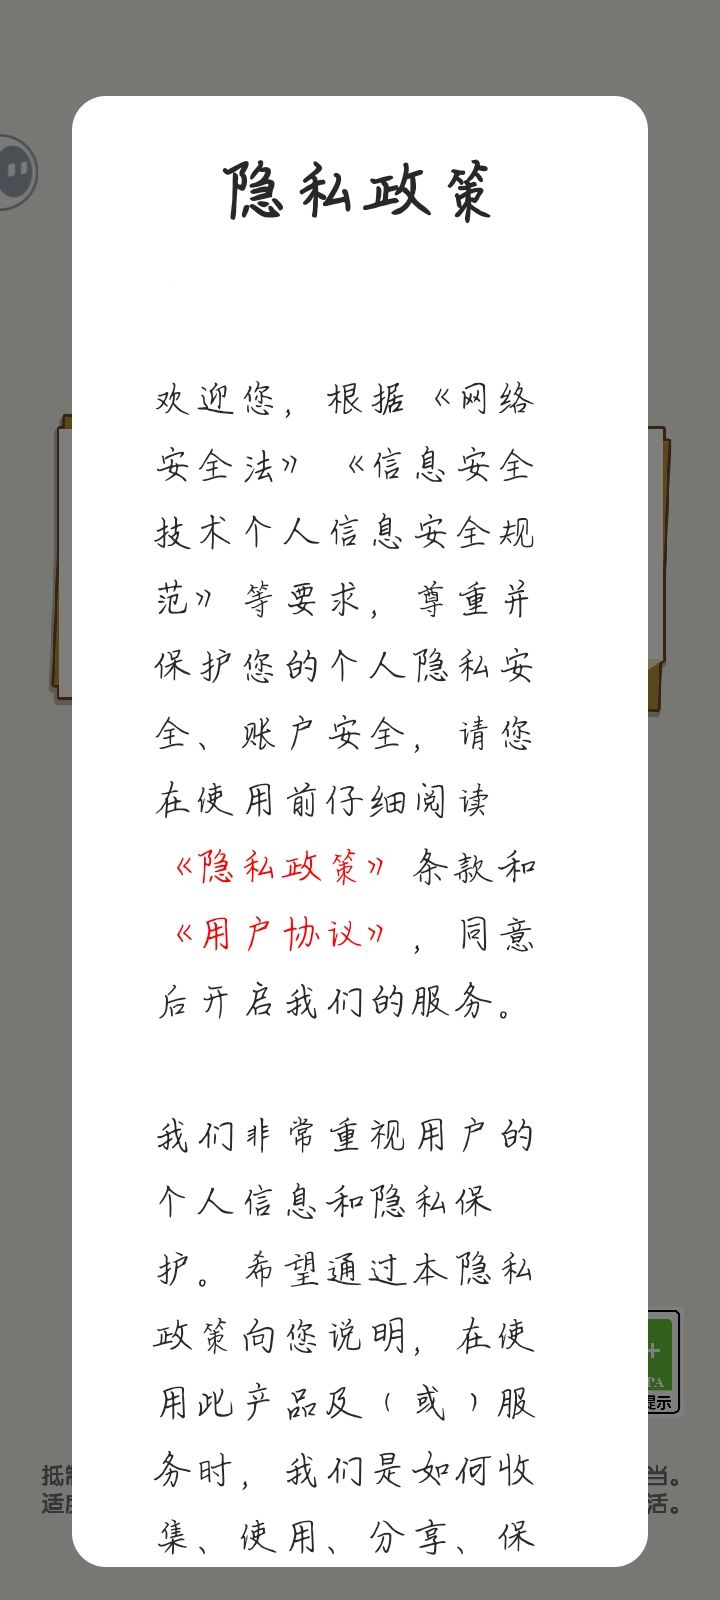 隐私政策
欢迎您，根据《网络
安全法》《信息安全
技术个人信息安全规
范》等要求，尊重并
保护您的个人隐私安
全、账户安全，请您
在使用前仔细阅读
《隐私政策》条款和
《用户协议》，同意
后开启我们的服务。
我们非常重视用户的
个人信息和隐私保
护。希望通过本隐私
政策向您说明，在使
用此产品及（或）服
务时，我们是如何收
集、使用、分享、保
+
PA
提示
抵制
当。
适度
活。